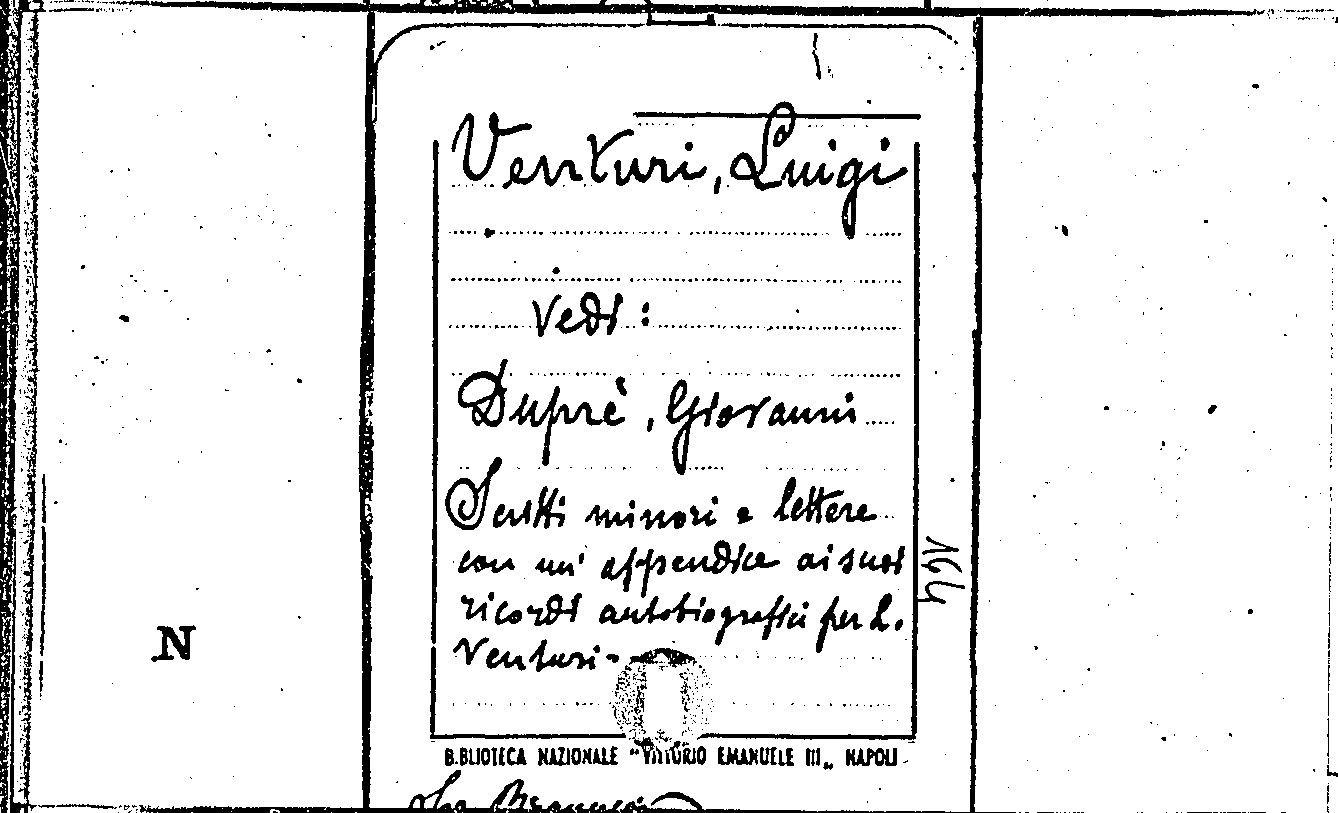 Venturi, Luigi
Vedi:
Duprè, Giovanni
Scritti minori e lettere
con un' appendice ai suoi
ricordi autobiografici per L.
Venturi -
N
BIBLIOTECA NAZIONALE "VITTORIO EMANUELE III„ NAPOLI